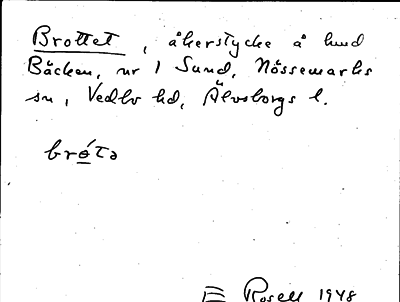 Brottet, åkerstycke å hmd
Bäcken, nr 1 Sund, Nössemarks
sn, Vedbo hd, Älvsborgs l.
brótə
Rosell 1948